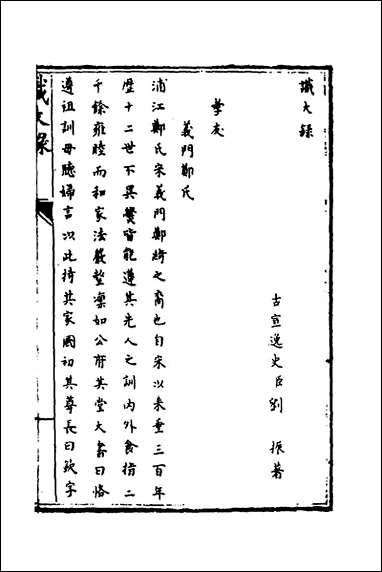 識大錄
古宣逸史臣劉 振著
孝友
義門鄭氏
浦江鄭氏宋義門鄭綺之裔也自宋以來垂三百年
歷十二世不異爨皆能遵其先人之訓內外食指二
千餘雍睦而和家法嚴整凛如公府其堂大書曰恪
遵祖訓毋聽婦言以此持其家國初其尊長曰欽字
識大錄